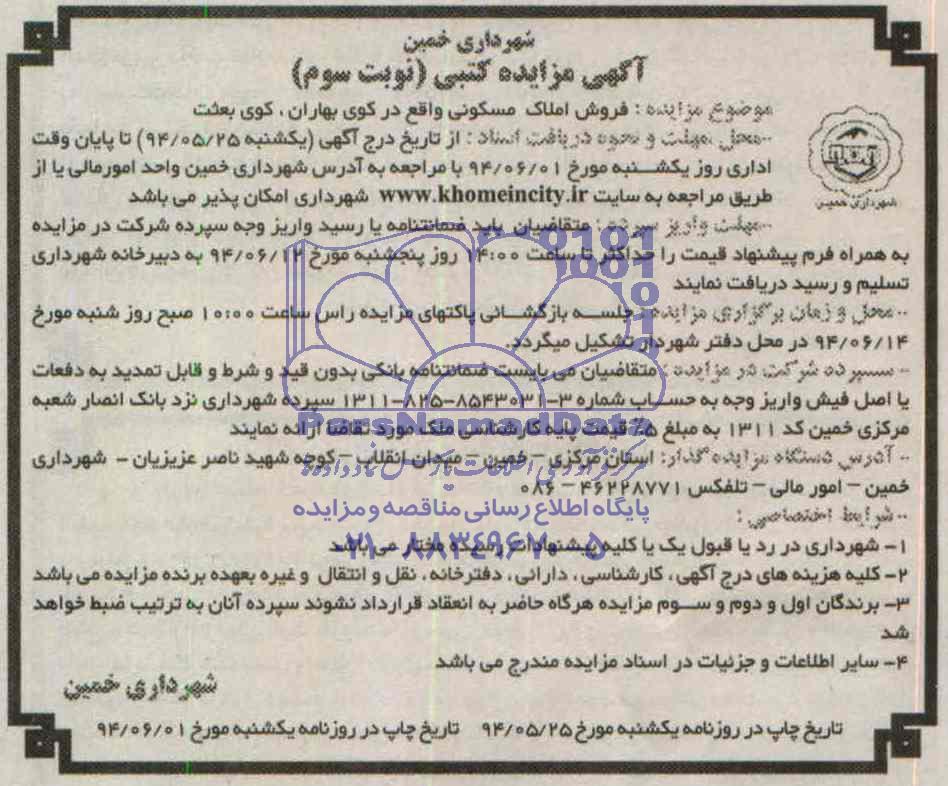 شهرداری خمین
آگهی مزایده کتبی (نوبت سوم)
موضوع مزایده : فروش املاک مسکونی واقع در کوی بهاران ، کوی بعثت
--محل ،مهلت و نحوه دریافت اسناد : از تاریخ درج آگهی (یکشنبه ۹۴/۰۵/۲۵) تا پایان وقت
اداری روز یکشنبه مورخ ۹۴/۰۶/۰۱ با مراجعه به آدرس شهرداری خمین واحد امورمالی یا از
طریق مراجعه به سایت www.khomeincity.ir شهرداری امکان پذیر می باشد
شهرداری خمین
--مهلت واریز سپرده : متقاضیان باید ضمانتنامه یا رسید واریز وجه سپرده شرکت در مزایده
به همراه فرم پیشنهاد قیمت را حداکثر تا ساعت ۱۴:۰۰ روز پنجشنبه مورخ ۹۴/۰۶/۱۲ به دبیرخانه شهرداری
تسلیم و رسید دریافت نمایند
-- محل و زمان برگزاری مزایده : جلسه بازگشائی پاکتهای مزایده راس ساعت ۱۰:۰۰ صبح روز شنبه مورخ
۹۴/۰۶/۱۴ در محل دفتر شهردار تشکیل میگردد.
-- سپرده شرکت در مزایده : متقاضیان می بایست ضمانتنامه بانکی بدون قید و شرط و قابل تمدید به دفعات
یا اصل فیش واریز وجه به حساب شماره ۳-۸۵۴۳۰۳۱-۸۲۵-۱۳۱۱ سپرده شهرداری نزد بانک انصار شعبه
مرکزی خمین کد ۱۳۱۱ به مبلغ ۵٪ قیمت پایه کارشناسی ملک مورد تقاضا ارائه نمایند
ParsNamadData
-- آدرس دستگاه مزایده گذار: استان مرکزی – خمین – میدان انقلاب – کوچه شهید ناصر عزیزیان – شهرداری
خمین – امور مالی – تلفکس ۴۶۲۲۸۷۷۱ – ۰۸۶
پایگاه اطلاع رسانی مناقصه و مزایده
-- شرایط اختصاصی :
۱- شهرداری در رد یا قبول یک یا کلیه پیشنهادات رسیده مختار می باشد
۲- کلیه هزینه های درج آگهی ، کارشناسی ، دارائی ، دفترخانه ، نقل و انتقال و غیره بعهده برنده مزایده می باشد
۳- برندگان اول و دوم و سوم مزایده هرگاه حاضر به انعقاد قرارداد نشوند سپرده آنان به ترتیب ضبط خواهد
شد
۴- سایر اطلاعات و جزئیات در اسناد مزایده مندرج می باشد
شهرداری خمین
تاریخ چاپ در روزنامه یکشنبه مورخ ۹۴/۰۵/۲۵ تاریخ چاپ در روزنامه یکشنبه مورخ ۹۴/۰۶/۰۱